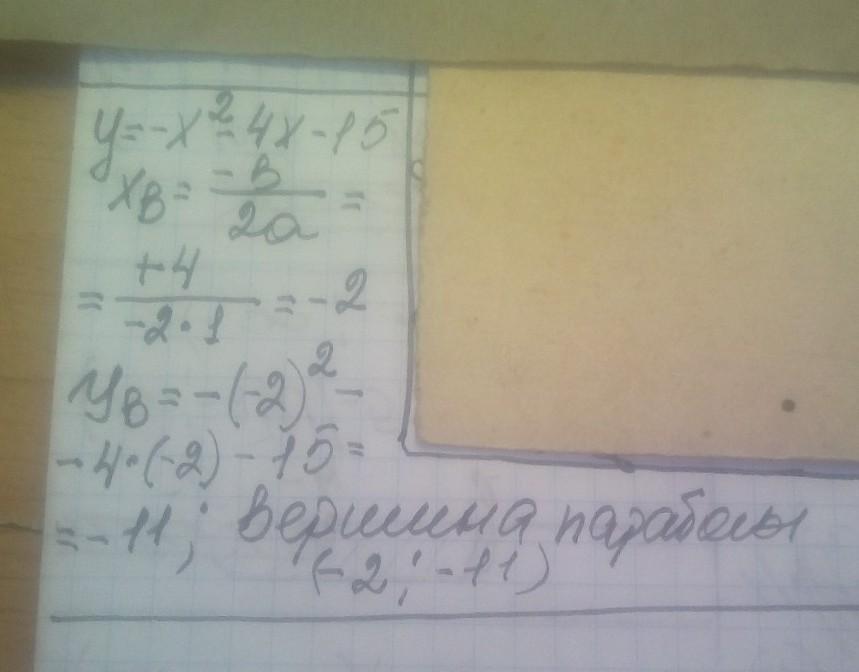 y=-x²-4x-15
xв= -в/2a =
= +4/-2·1 =-2
yв=-(-2)²-
-4·(-2)-15=
=-11; вершина параболы
(-2;-11)